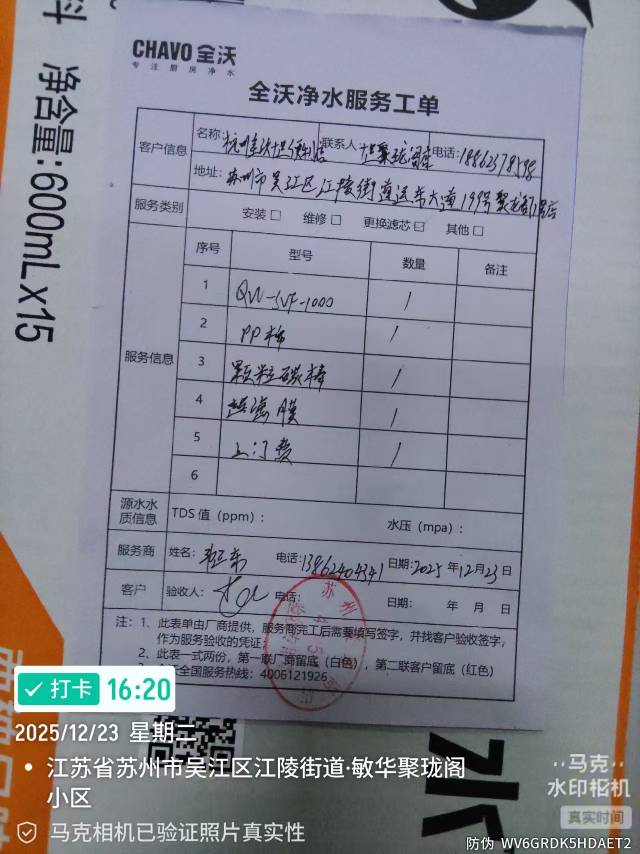 斗
净含量:600mLx15
CHAVO 全沃
专注厨房净水
全沃净水服务工单
客户信息 名称: 联系人 电话:
地址: 苏州市吴江区江陵街道运东大道199号
服务类别 安装□ 维修□ 更换滤芯☑ 其他□
服务信息 序号 型号 数量 备注
1 QW-SVF-1000 1
2 PP棉 1
3 颗粒碳棒 1
4 超滤膜 1
5 上门费 1
6
源水水质信息 TDS 值(ppm): 水压(mpa):
服务商 姓名: 电话:13862404341 日期:2025年12月23日
客户 验收人: 电话: 日期: 年 月 日
注:1、此表单由厂商提供,服务商完工后需要填写签字,并找客户验收签字,
作为服务验收的凭证
2、此表一式两份,第一联厂商留底(白色),第二联客户留底(红色)
全国服务热线:4006121926
苏州
打卡 16:20
2025/12/23 星期二
江苏省苏州市吴江区江陵街道·敏华聚珑阁
小区
马克相机已验证照片真实性
马克
水印相机
真实时间
防伪 WV6GRDK5HDAET2